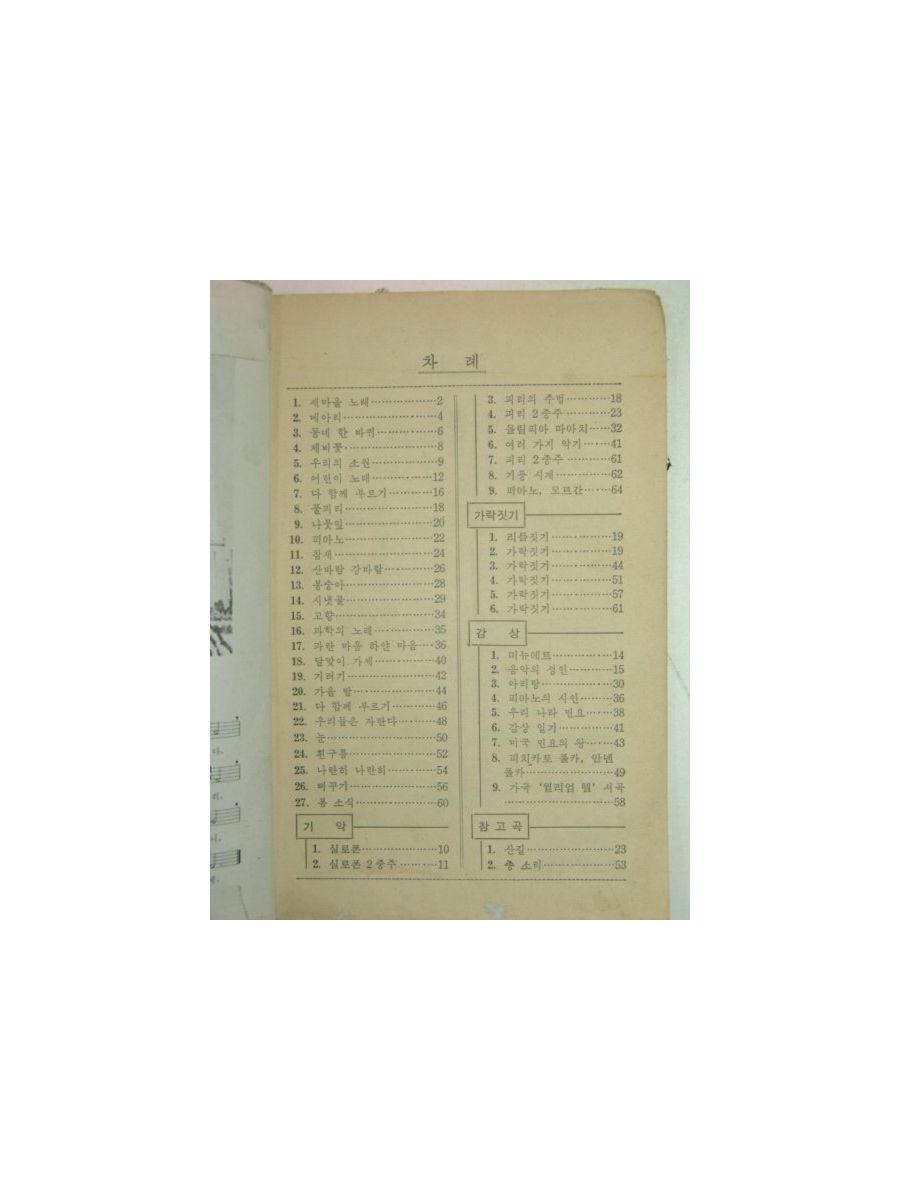 차 례
1. 새마을 노래 2
2. 메아리 4
3. 동네 한 바퀴 6
4. 제비꽃 8
5. 우리의 소원 9
6. 어린이 노래 12
7. 다 함께 부르기 16
8. 풀피리 18
9. 나뭇잎 20
10. 피아노 22
11. 참새 24
12. 산바람 강바람 26
13. 봉숭아 28
14. 시냇물 29
15. 고향 34
16. 과학의 노래 35
17. 파란 마음 하얀 마음 36
18. 달맞이 가세 40
19. 기러기 42
20. 가을 밤 44
21. 다 함께 부르기 46
22. 우리들은 자란다 48
23. 눈 50
24. 흰구름 52
25. 나란히 나란히 54
26. 뻐꾸기 56
27. 봄 소식 60
기 악
1. 실로폰 10
2. 실로폰 2중주 11
3. 피리의 주법 18
4. 피리 2중주 23
5. 올림피아 마아치 32
6. 여러 가지 악기 41
7. 피리 2중주 61
8. 기둥 시계 62
9. 피아노, 오르간 64
가락짓기
1. 리듬짓기 19
2. 가락짓기 19
3. 가락짓기 44
4. 가락짓기 51
5. 가락짓기 57
6. 가락짓기 61
감 상
1. 미뉴에트 14
2. 음악의 성인 15
3. 아리랑 30
4. 피아노의 시인 36
5. 우리 나라 민요 38
6. 감상 일기 41
7. 미국 민요의 왕 43
8. 피치카토 폴카, 안넨
폴카 49
9. 가극 '윌리엄 텔' 서곡
58
참고곡
1. 산길 23
2. 종 소리 53